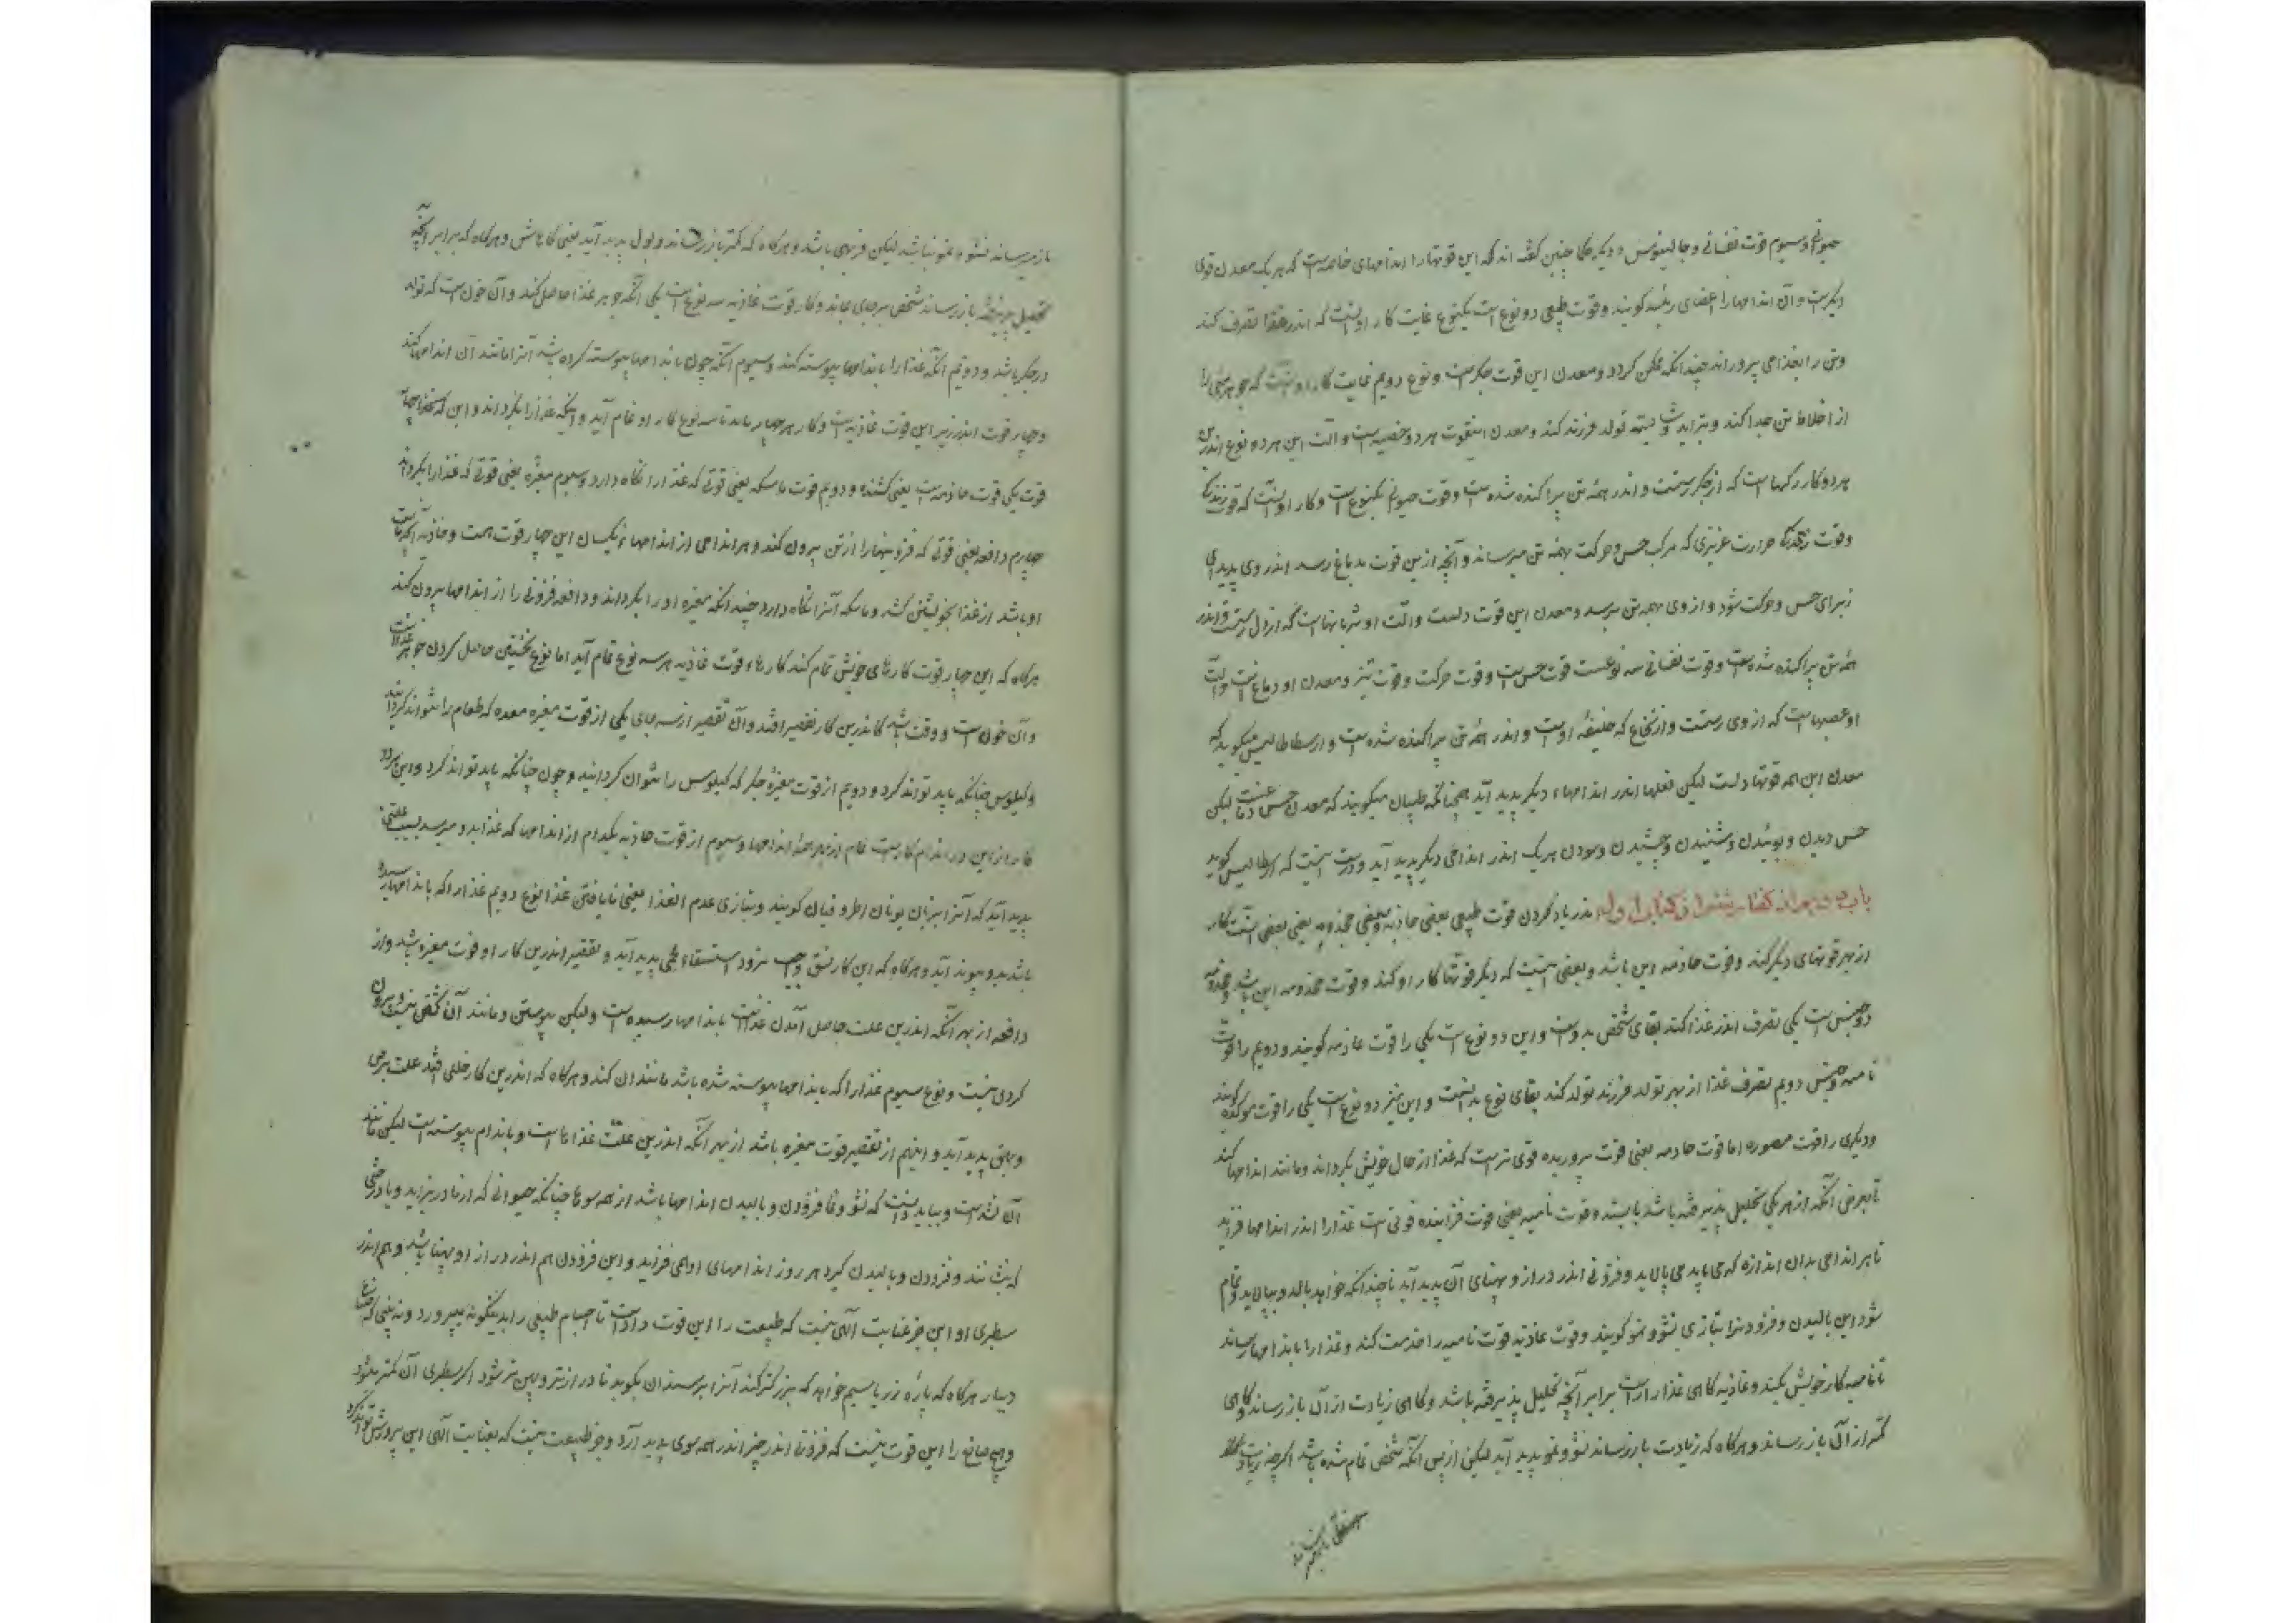 حیوانی و سیوم قوت نفسانی و جالینوس و دیگر حکما چنین گفته اند که این قوتها را اندامهای خاصه است که هر یک معدن قوتی
دیگرست و آن اندامها را اعضای رئیسه گویند و قوت طبیعی دو نوع است یکنوع غایت کار او آنست که اندر غذا تصرف کند
و تن را بغذا همی پروراند چندانکه ممکن گردد و معدن این قوت جگرست و نوع دویم نهایت کار او آنست که جوهر منی را
از اخلاط تن جدا کند و تولد فرزند کند و معدن اینقوت هر دو خصیه است و آلت این هر دو نوع اندرین
هر دو کار رگهاست که از جگر رستست و اندر همه تن پراکنده شده است و قوت حیوانی یکنوع است و کار او آنست که قوت زندگی
و قوت زندگی حرارت غریزی که مرکب حس و حرکت بهمه تن میرساند و آنچه از ین قوت بدماغ رسد اندر وی پدید آمد
زبرای حس و حرکت شود و از وی بهمه تن برسد و معدن این قوت دلست و آلت او شریانهاست که از دل رستست و اندر
همه تن پراکنده شده است و قوت نفسانی سه نوعست قوت حس است و قوت حرکت و قوت تمیز و معدن او دماغ است و آلت
او عصبهاست که از وی رستست و از نخاع که خلیفه اوست و اندر همه تن پراکنده شده است و ارسطاطالیس میگوید که
معدن این همه قوتها دلست لیکن فعلها اندر اندامهاء دیگر پدید آید همچنانکه طبیبان میگویند که معدن حس دماغست لیکن
حس دیدن و بوئیدن و شنیدن و چشیدن و سودن هر یک اندر اندامی دیگر پدید آید و درست آنست که ارسطاطالیس گوید
باب دویم از گفتار ششم از کتاب اول اندر یاد کردن قوت طبیعی بعضی خادمه و بعضی مخدومه یعنی بعضی آنست کار
از بهر قوتهای دیگر کند و قوت خادمه این باشد و بعضی آنست که دیگر قوتها کار او کند و قوت مخدومه این باشد و مخدومه
دو جنس است یکی تصرف اندر غذا کند بقای شخص بدوست و این دو نوع است یکی را قوت غاذیه گویند و دویم را قوت
نامیه و جنس دویم تصرف غذا از بهر تولد فرزند تولد کند بقای نوع بدانست و این نیز دو نوع است یکی را قوت مولده گویند
و دیگری را قوت مصوره اما قوت غاذیه یعنی قوت پرورنده قوتی است که غذا از حال خویش بگرداند و مانند اندامها کند
تا بعوض آنکه از هر یکی تحلیل پذیرفته باشد بایستد و قوت نامیه یعنی قوت فزاینده قوتی است غذا را اندر اندامها فزاید
تا هر اندامی بدان اندازه که می باید می بالاید و فزونی اندر دراز و پهنای آن پدید آید تا چندانکه خواهد بالد و ببالاید و تمام
شود این بالیدن و فزودن را بتازی نشو و نمو گویند و قوت غاذیه قوت نامیه را خدمت کند و غذا را باندامها رساند
تا نامیه کار خویش بکند و غاذیه گاهی غذا را راست برابر آنچه تحلیل پذیرفته باشد و گاهی زیادت از آن باز رساند و گاهی
کمتر از آن باز رساند و هرگاه که زیادت باز رساند نشو و نمو پدید آید لیکن از پس آنکه شخص تمام شده باشد اگرچه زیادت
باز میرساند نشو و نمو نباشد لیکن فربهی باشد و هرگاه که کمتر باز رساند ذبول پدید آید یعنی کاهش و هرگاه که برابر آنچه
تحلیل پذیرفته باز رساند شخص برجای بماند و کار قوت غاذیه سه نوع است یکی آنکه جوهر غذا حاصل کند و آن خون است که تولد
در جگر باشد و دویم آنکه غذا را باندامها پیوسته کند و سیوم آنکه چون باندامها پیوسته کرده شد آنرا مانند آن اندامها کند
و چهار قوت اندر زیر این قوت غاذیه است و کار هر چهار باید تا سه نوع کار او تمام آید و آنکه غذا را بگرداند و این
قوت یکی قوت جاذبه است یعنی کشنده و دویم قوت ماسکه یعنی قوتی که غذا را نگاه دارد و سیوم مغیره یعنی قوتی که غذا را بگرداند
چهارم دافعه یعنی قوتی که فزونیها را از تن بیرون کند و هر اندامی از اندامهاء یکسان این چهار قوت هست و جاذبه آنچه بابت
او باشد از غذا بخویشتن کشد و ماسکه آنرا نگاه دارد چندانکه مغیره او را بگرداند و دافعه فزونی را از اندامها بیرون کند
هرگاه که این چهار قوت کارهای خویش تمام کند کارهاء قوت غاذیه هر سه نوع تمام آید اما نوع نخستین حاصل کردن جوهر غذاست
و آن خون است و وقت باشد کاندرین کار تقصیر افتد و آن تقصیر از سه جای یکی از قوت مغیره معده که طعام را نتواند گردانید
و کیلوس چنانکه باید تواند کرد و دویم از قوت مغیره جگر که کیلوس را نتوان گردانید و چون چنانکه باید تواند کرد و این هر دو
کار از این دو اندام کاریست عام از بهر همه اندامها و سیوم از قوت جاذبه یکدام از اندامها که غذا بدو میرسد بسبب علتی
پدید آید که آنرا بزبان یونان اطروفیان گویند و بتازی عدم الغذا یعنی نایافتن غذا نوع دویم غذا را که باندامها رسیده
باشد بدو پیوند آید و هرگاه که این کار نسق واجب نرود استسقاء لحمی پدید آید و تقصیر اندرین کار او قوت مغیره باشد و از
دافعه از بهر آنکه اندرین علت حاصل آمدن غذاست باندامها رسیده است ولیکن پیوستن و مانند آن گشتن نیست و بیرون
کردن نیست و نوع سیوم غذا را که باندامها پیوسته شده باشد مانند آن کند و هرگاه که اندرین کار خللی افتد علت برص
و بهق پدید آید و اینهم از تقصیر قوت مغیره باشد از بهر آنکه اندرین علت غذا است و باندام پیوسته است لیکن مانند
آن نشدست و بباید دانست که نشو و نما فزودن و بالیدن اندامها باشد از همه سوها چنانکه حیوانی که از مادر بزاید و یا درختی
که بنشانند و فزودن و بالیدن گیرد هر روز اندامهای او همی فزاید و این فزودن هم اندر دراز او پهنا باشد و هم اندر
سطبری او این جز عنایت الهی نیست که طبیعت را این قوت دادست تا اجسام طبیعی را بدینگونه میپرورد و نه بینی که صناع
دینار هرگاه که پاره زر یا سیم خواهد که بزرگتر کند آنرا بر سندان بکوبد تا درازتر و پهن تر شود اگر سطبری آن کمتر شود
و هیچ صانع را این قوت نیست که فزونی اندر چیز اندر همه سوی پدید آرد و جز طبیعت نیست که بعنایت الهی این پرورش تواند کرد